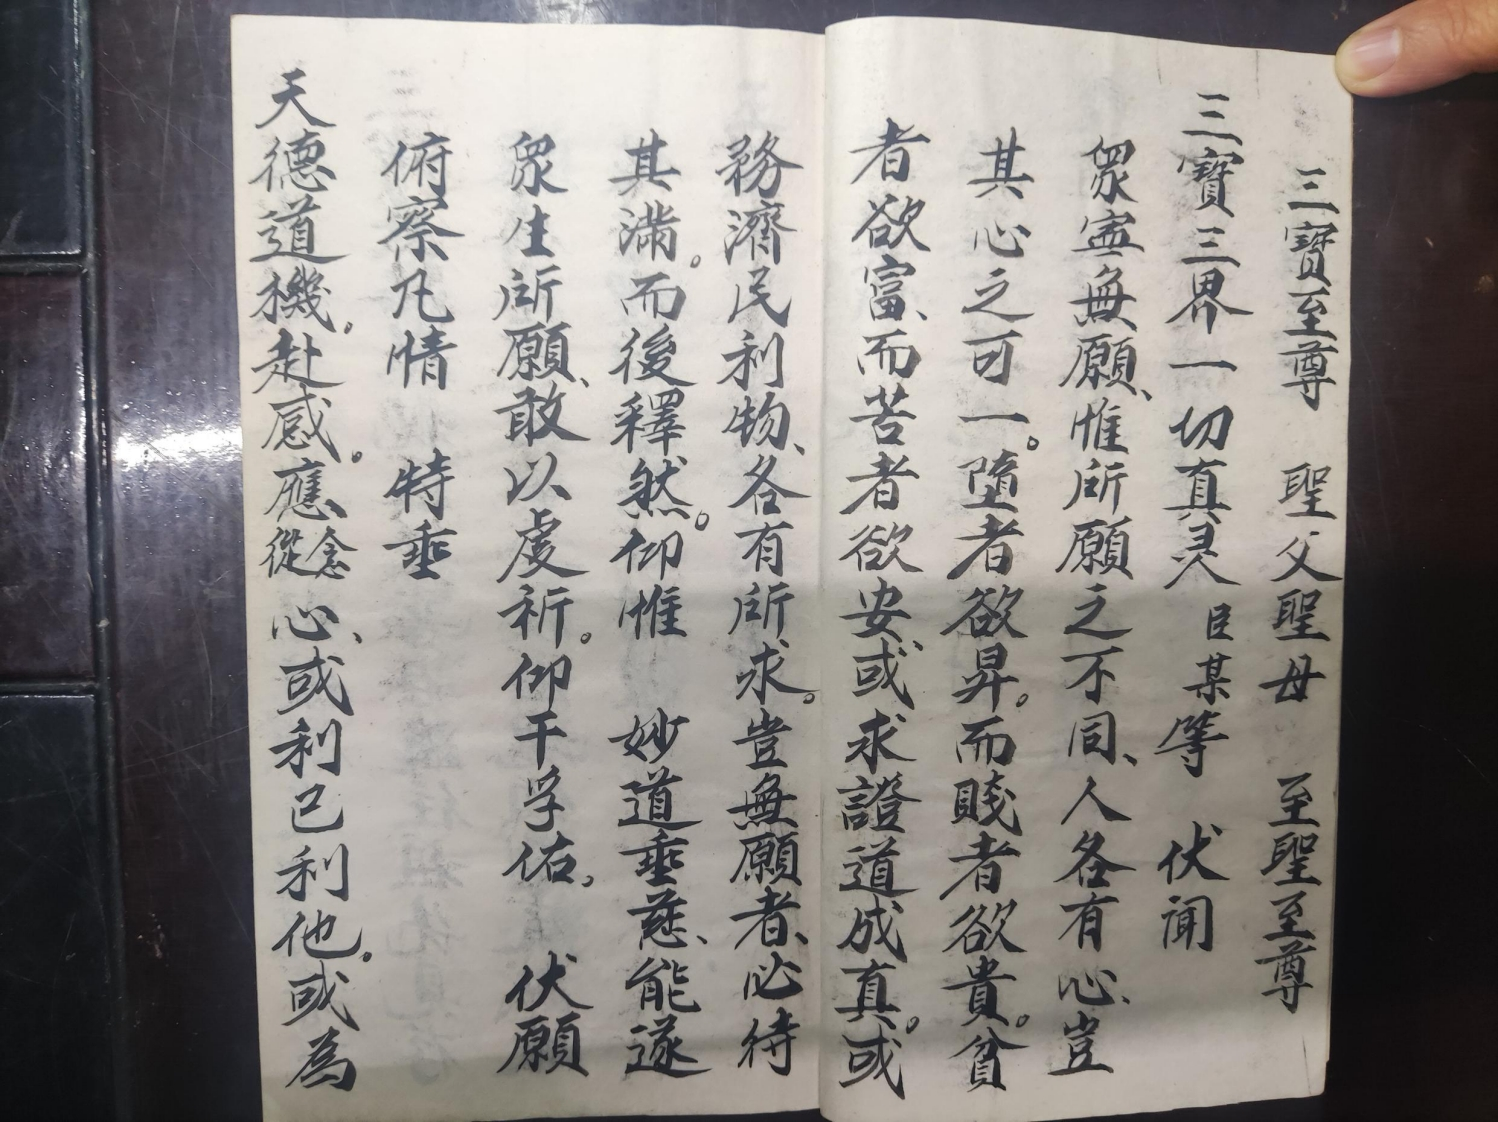 三寶至尊　聖父聖母　至聖至尊
三寶三界一切真灵臣某等　伏闻
眾寔無願、惟所願之不同、人各有心、豈
其心之可一。墮者欲昇。而賤者欲貴。貧
者欲富、而苦者欲安、或求證道成真。或
務濟民利物、各有所求。豈無願者、必待
其滿。而後釋然。仰惟　妙道垂慈、能遂
眾生所願、敢以虔祈。仰干孚佑。　伏願
俯察凡情　特垂
天德道機。赴感。應、從念心、或利己利他。或為